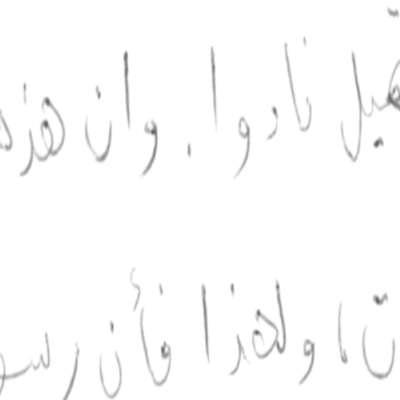 نادوا . وان هذه
ت، ولهذا فأن رسو